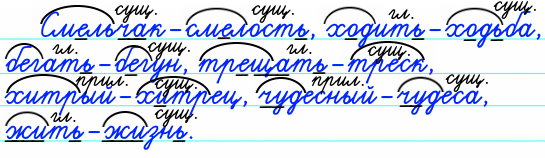 сущ. сущ. гл. сущ.
Смельчак – смелость, ходить – ходьба,
гл. сущ. гл. сущ.
бегать – бегун, трещать – треск,
прил. сущ. прил. сущ.
хитрый – хитрец, чудесный – чудеса,
гл. сущ.
жить – жизнь.